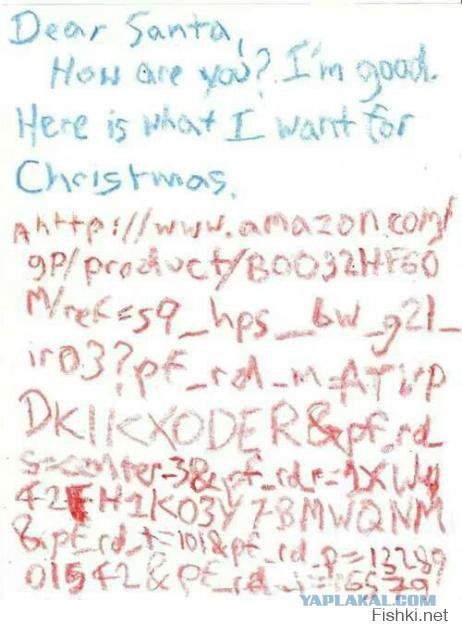 Dear Santa,
How are you? I'm good.
Here is what I want for
Christmas.
A http://www.amazon.com/
gp/product/B0032HF60
M/ref=s9_hps_bw_g21_
ir03?pf_rd_m=ATVP
DKIKXODER&pf_rd_
s=center-3&pf_rd_r=1XWY
42FH1K03Y78MWQNM
&pf_rd_t=101&pf_rd_p=13289
01542&pf_rd_i=
YAPLAKAL.COM
Fishki.net